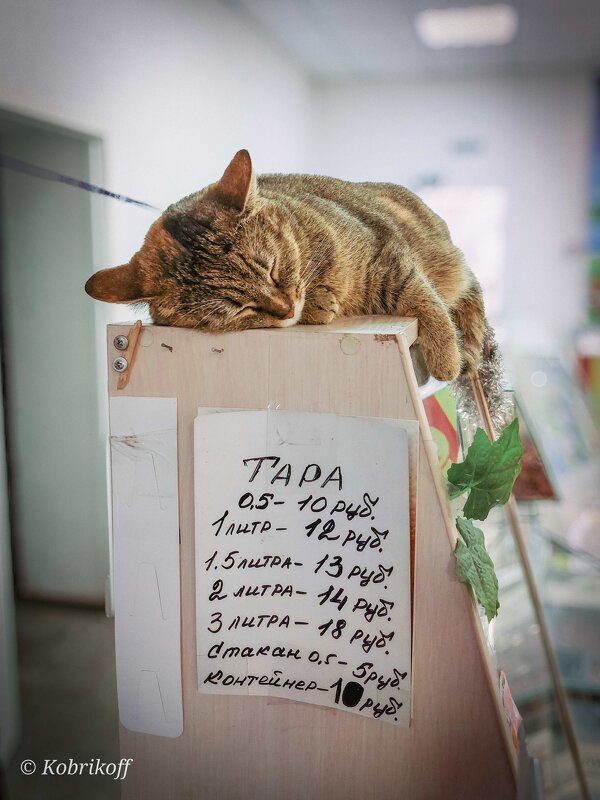 ТАРА
0,5 - 10 руб.
1 литр - 12 руб.
1.5 литра - 13 руб.
2 литра - 14 руб.
3 литра - 18 руб.
Стакан 0,5 - 5 руб.
контейнер - 10 руб.
© Kobrikoff